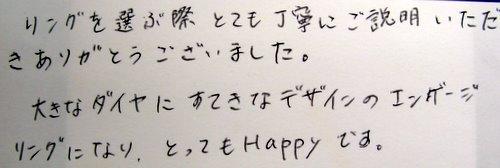 リングを選ぶ際 とても丁寧にご説明 いただ
きありがとうございました。
大きなダイヤに すてきなデザインの エンゲージ
リングになり、とってもHappyです。